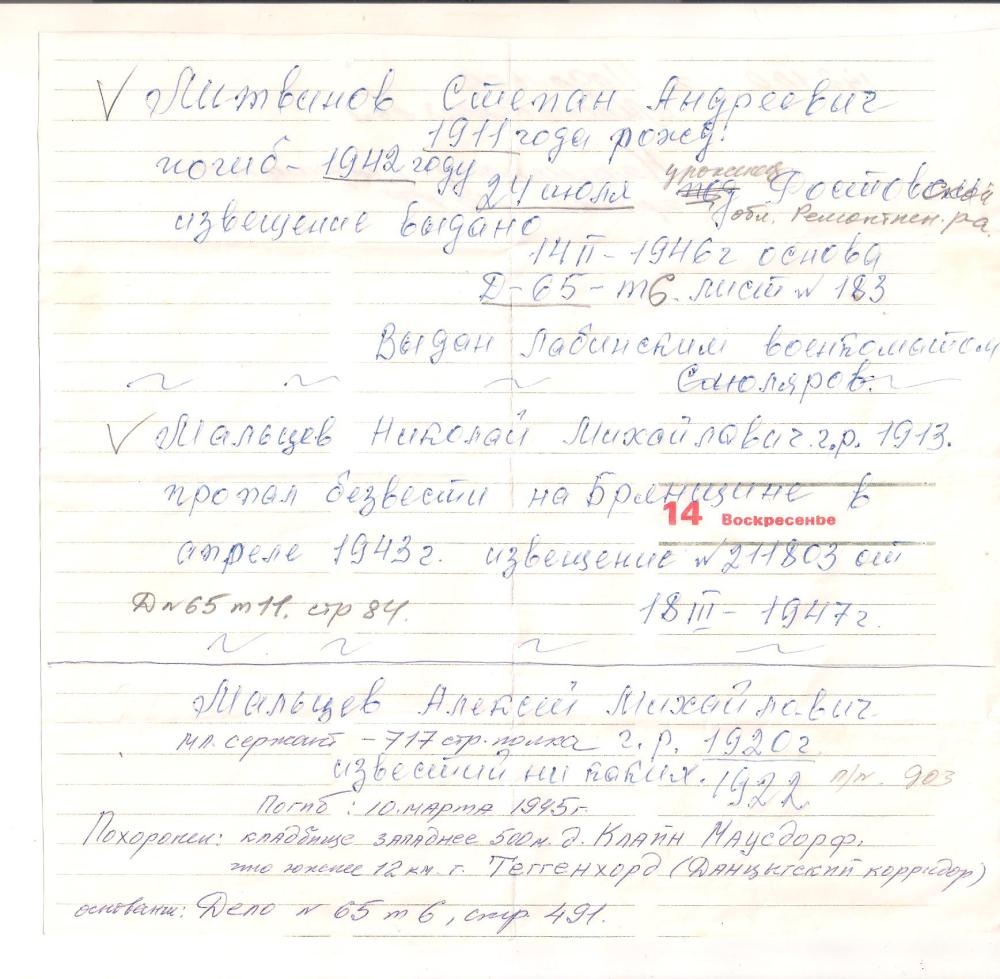 Литвинов Степан Андреевич
1911 года рожд.
погиб - 1942 году
24 июля уроженец Ростовской
обл. Ремонтнен. р-а.
извещение выдано
14 II - 1946г основа
Д-65-т6. лист № 183
Выдан Лабинским военкоматом
Мальцев Николай Михайлавич г.р. 1913.
пропал безвести на Брянщине в
14 Воскресенье
апреле 1943г. извещение №211803 от
Д №65 т 11. стр 84. 18 III - 1947г.
Мальцев Алексей Михайлавич
мл. сержант - 717 стр. полка г.р. 1920г
известий ни каких. 1922 п/п. 903
Погиб: 10 марта 1945г.
Похоронен: кладбище западнее 500м. д. Клайн Маусдорф.
это южнее 12 км. г. Теггенхорд (Данцыгский корридор)
основан: Дело № 65 т 6, стр 491.